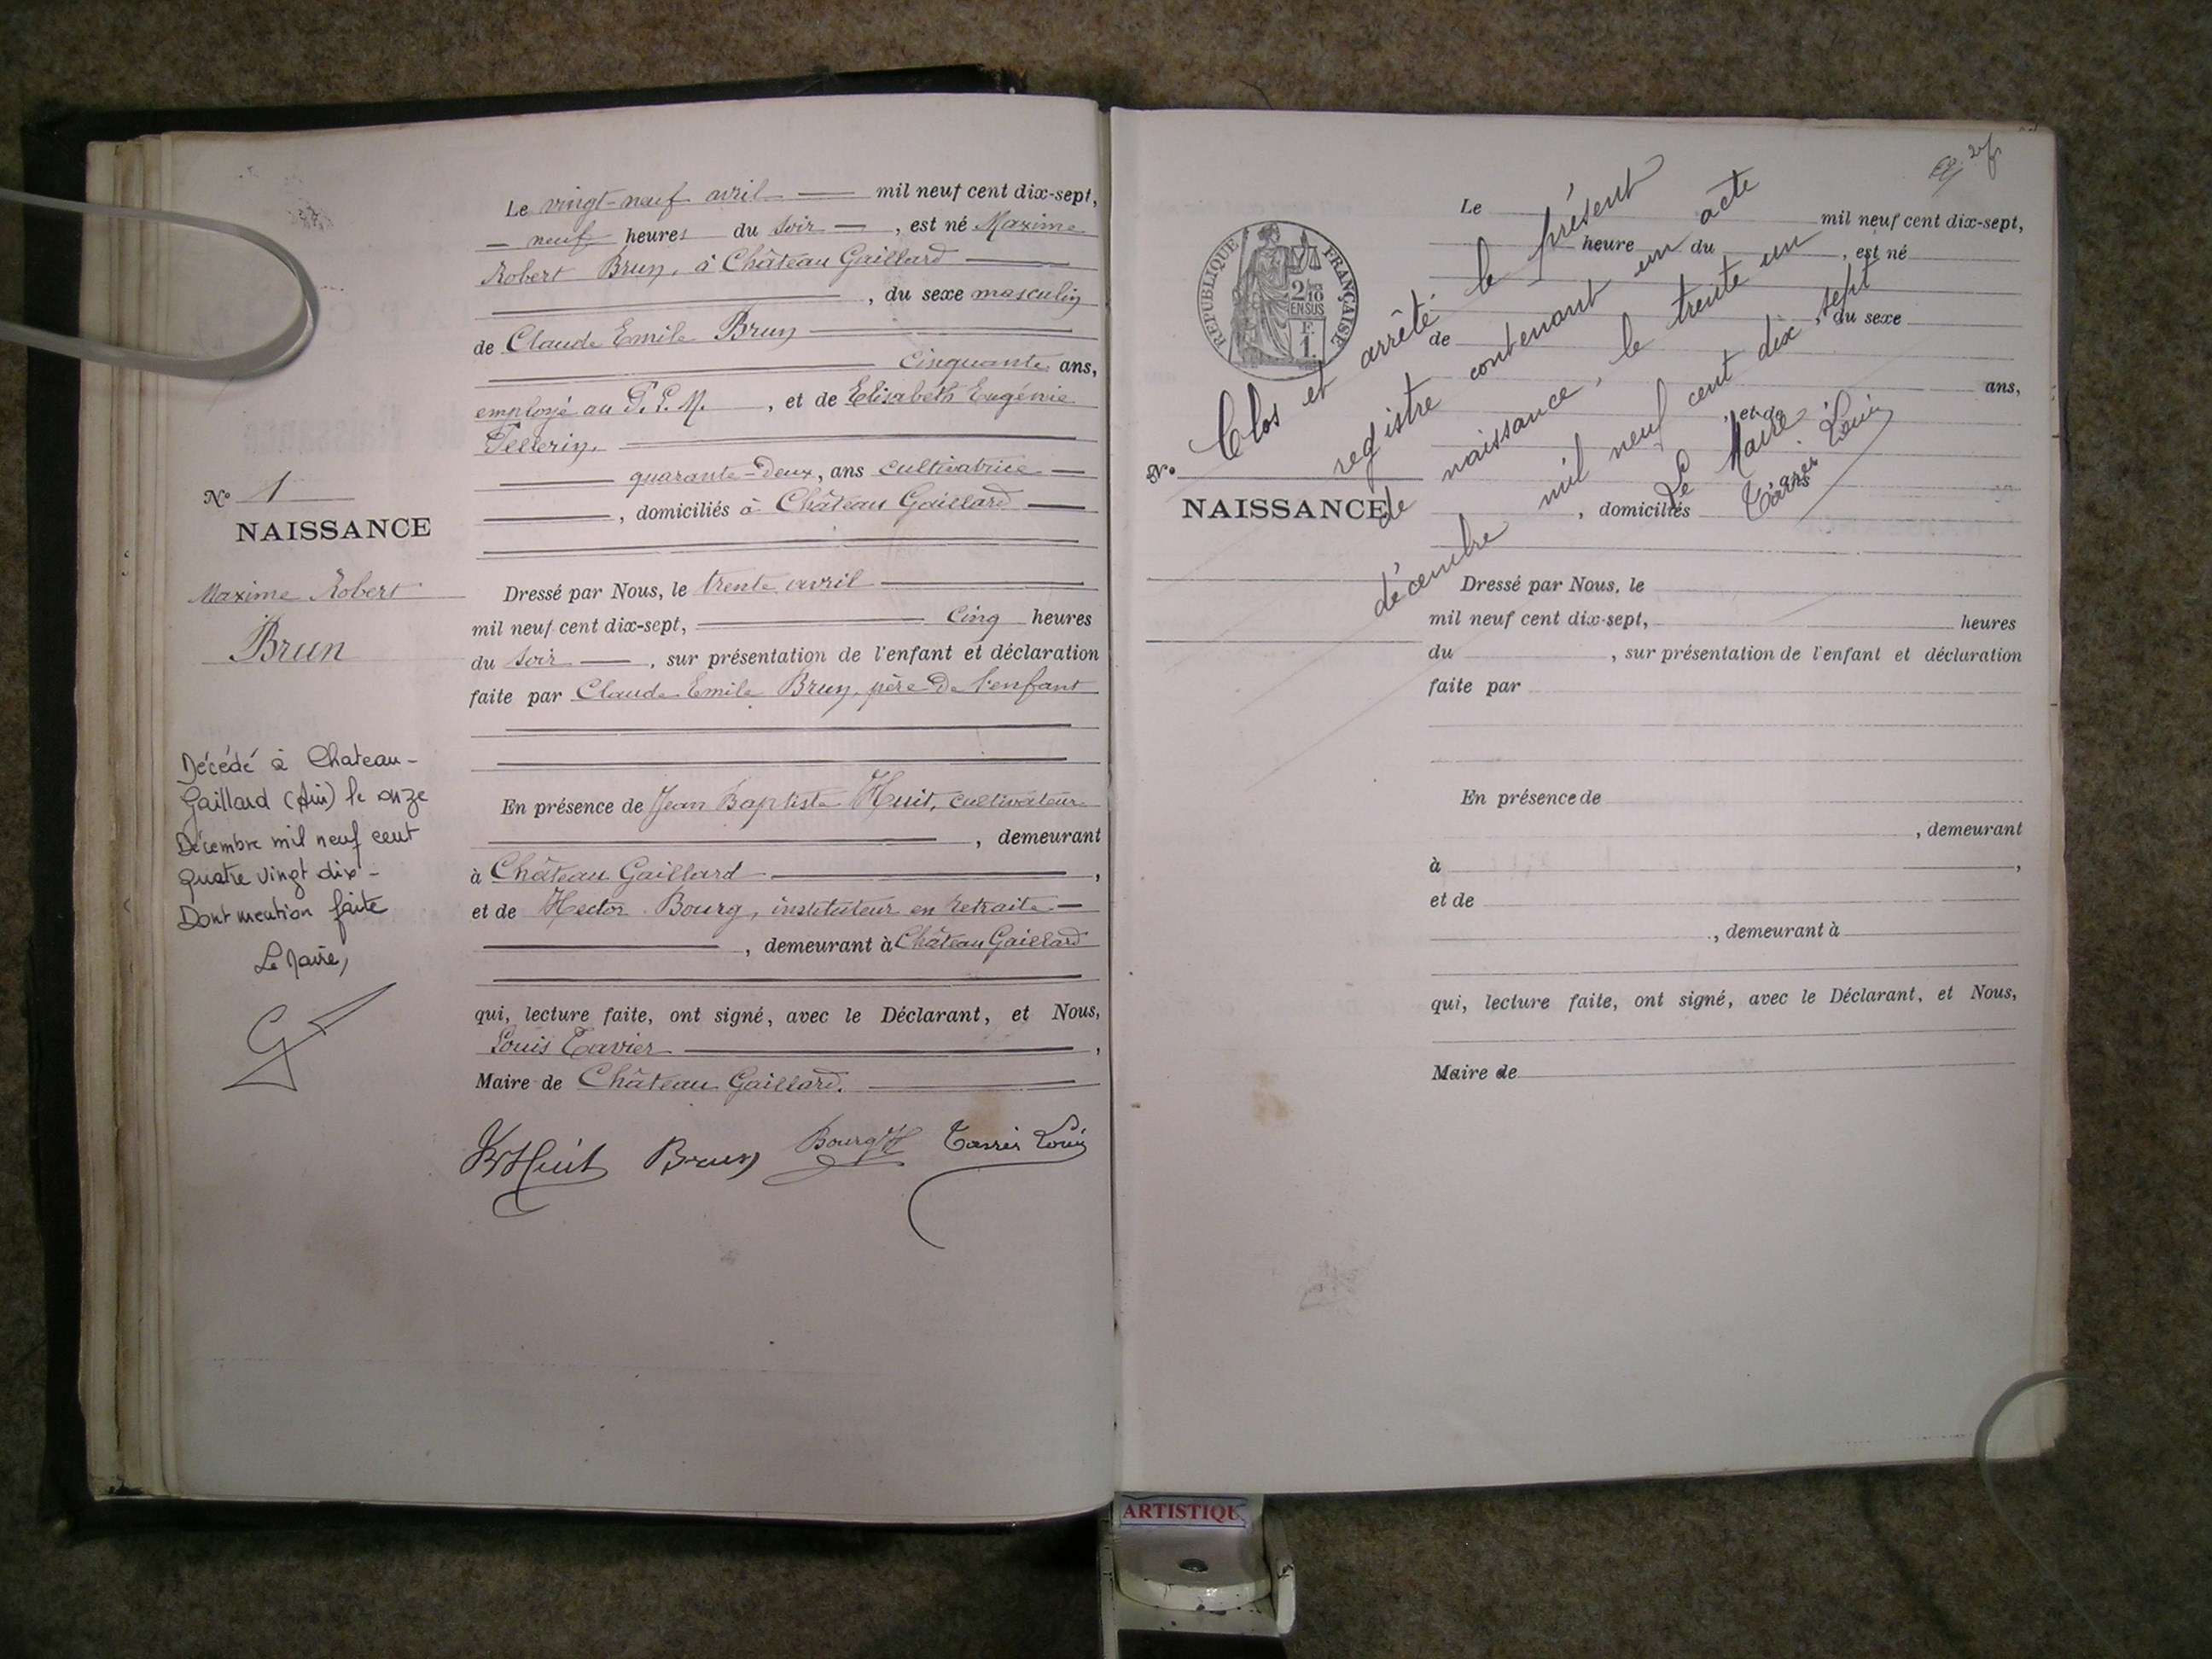 Le vingt-neuf avril mil neuf cent dix-sept,
neuf heures du soir, est né Maxime
Robert Brun, à Château Gaillard
, du sexe masculin
de Claude Emile Brun
cinquante ans,
employé au P. L. M., et de Elisabeth Eugénie
Pellerin,
quarante-deux, ans cultivatrice
, domiciliés à Château Gaillard
N° 1
NAISSANCE
Maxime Robert
Brun
Dressé par Nous, le trente avril
mil neuf cent dix-sept, cinq heures
du soir, sur présentation de l'enfant et déclaration
faite par Claude Emile Brun, père de l'enfant
Décédé à Chateau-
Gaillard (Ain) le onze
Décembre mil neuf cent
quatre vingt dix -
Dont mention faite
Le Maire,
En présence de Jean Baptiste Huit, cultivateur
, demeurant
à Château Gaillard,
et de Hector Bourg, instituteur en retraite
, demeurant à Château Gaillard
qui, lecture faite, ont signé, avec le Déclarant, et Nous,
Louis Tavier,
Maire de Château Gaillard.
Huit Brun Bourg H Louis
Le mil neuf cent dix-sept,
heure du , est né
, du sexe
de
ans,
, et de
, domiciliés
RÉPUBLIQUE FRANÇAISE
2/10
EN SUS
F.
1.
Clos et arrêté le présent
registre contenant un acte
de naissance, le trente un
décembre mil neuf cent dix sept
Le Maire
Louis
N°
NAISSANCE
Dressé par Nous, le
mil neuf cent dix-sept, heures
du , sur présentation de l'enfant et déclaration
faite par
En présence de
, demeurant
à ,
et de
, demeurant à
qui, lecture faite, ont signé, avec le Déclarant, et Nous,
Maire de
ARTISTIQU